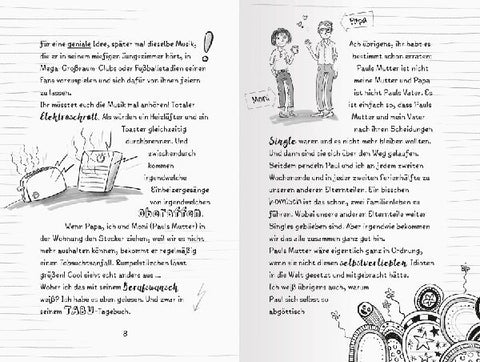 für eine geniale Idee, später mal dieselbe Musik,
die er in seinem miefigen Jungszimmer hört, in
Mega-Großraum-Clubs oder Fußballstadien seinen
Fans vorzuspielen und sich dafür von ihnen feiern
zu lassen.
Ihr müsstet euch die Musik mal anhören! Totaler
Elektroschrott. Als würden ein Heizlüfter und ein
Toaster gleichzeitig
durchbrennen. Und
zwischendurch
kommen
irgendwelche
Einheizergesänge
von irgendwelchen
oberaffen.
Wenn Papa, ich und Moni (Pauls Mutter) in
der Wohnung den Stecker ziehen, weil wir es nicht
mehr aushalten können, bekommt er regelmäßig
einen Tobsuchtsanfall. Rumpelstilzchen lässt
grüßen! Cool sieht echt anders aus ...
Woher ich das mit seinem Berufswunsch
weiß? Ich habe es eben gelesen. Und zwar in
seinem TABU-Tagebuch.
8
Papa
Moni
Ach übrigens, ihr habt es
bestimmt schon erraten:
Pauls Mutter ist nicht
meine Mutter und Papa
ist nicht Pauls Vater. Es
ist einfach so, dass Pauls
Mutter und mein Vater
nach ihren Scheidungen
Single waren und es nicht mehr bleiben wollten.
Und dann sind sie sich über den Weg gelaufen.
Seitdem pendeln Paul und ich an jedem zweiten
Wochenende und in jeder zweiten Ferienhälfte zu
unseren anderen Elternteilen. Ein bisschen
komisch ist das schon, zwei Familienleben zu
führen. Wobei unsere anderen Elternteile weiter
Singles geblieben sind. Aber irgendwie bekommen
wir das alle zusammen ganz gut hin.
Pauls Mutter wäre eigentlich ganz in Ordnung,
wenn sie nicht diesen selbstverliebten Idioten
in die Welt gesetzt und mitgebracht hätte.
Ich weiß übrigens auch, warum
Paul sich selbst so
abgöttisch